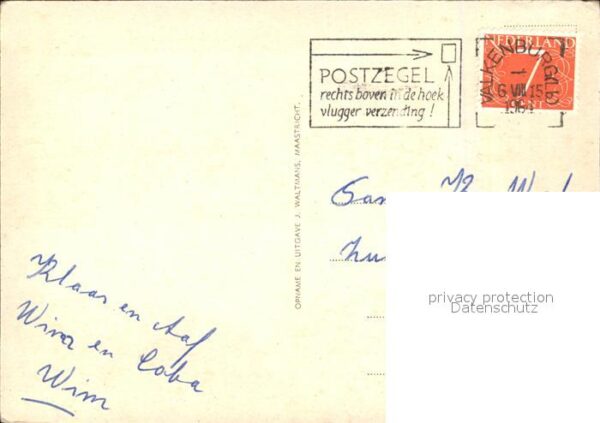 POSTZEGEL
rechts boven in de hoek
vlugger verzending!
NEDERLAND
7
CENT
VALKENBURG (LB)
1
6 VIII 15
1961
OPNAME EN UITGAVE J. WALTMANS, MAASTRICHT.
Fam.
Klaas en Aaf
Wim en Coba
Wim
privacy protection
Datenschutz